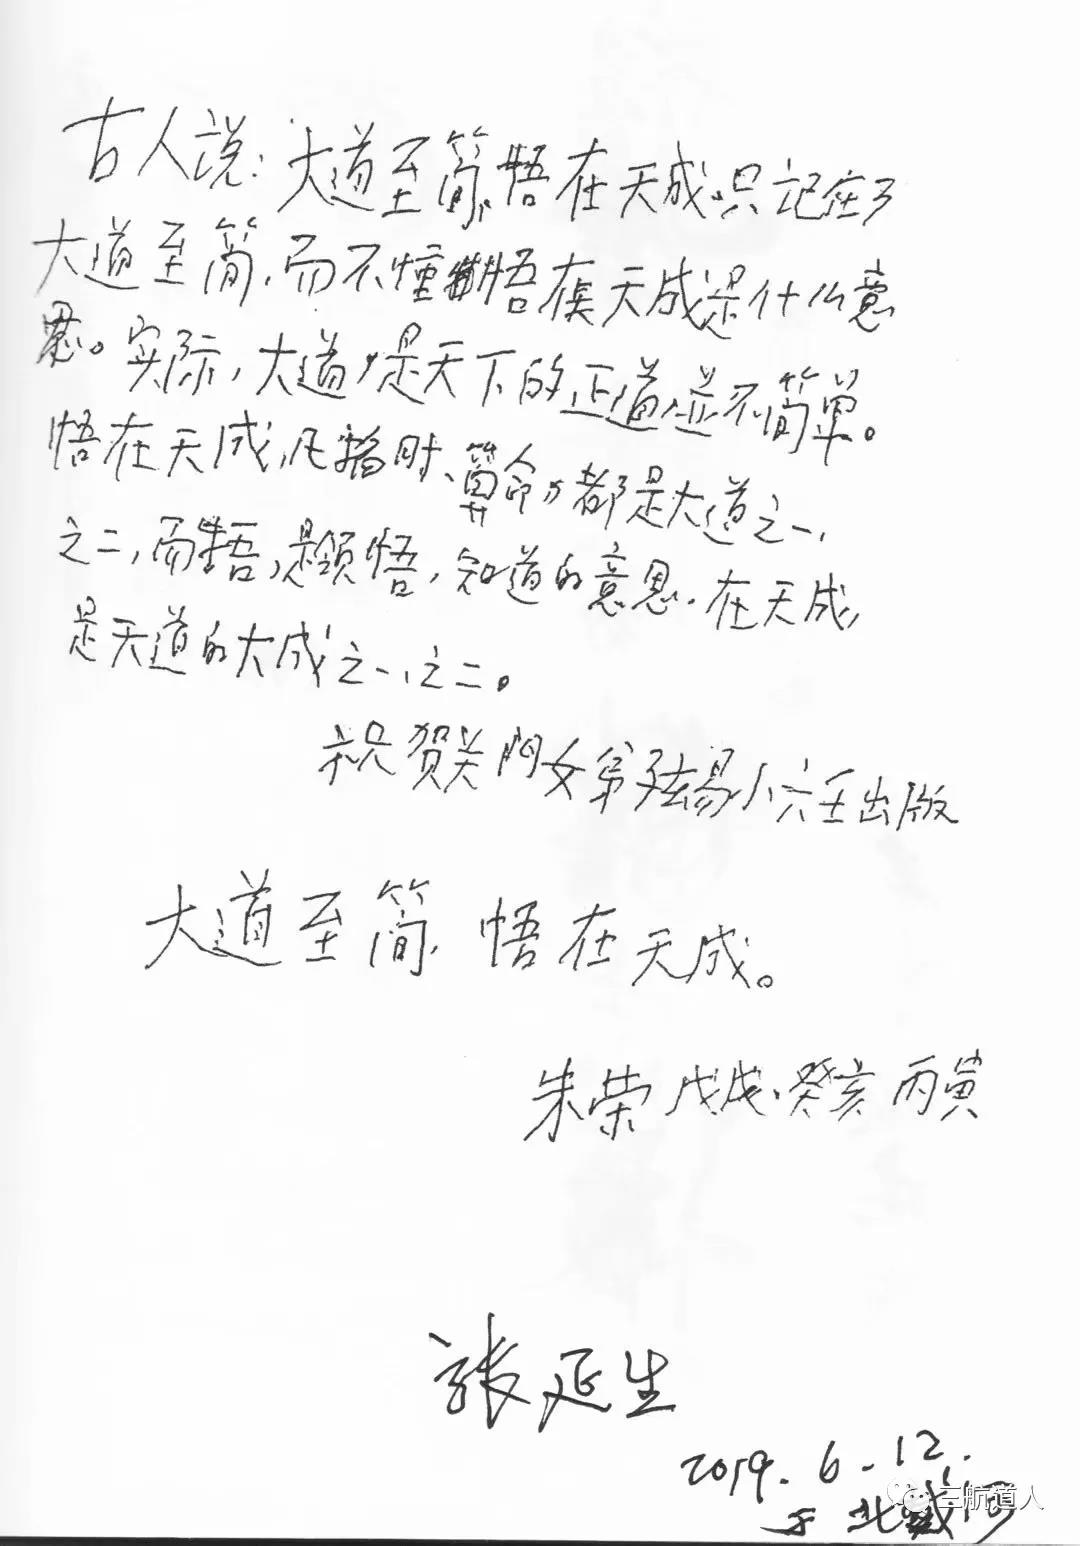 古人说：大道至简，悟在天成。只记在了
大道至简，而不懂悟在天成是什么意
思。实际，大道，是天下的正道，並不简单。
悟在天成，凡 时、算命，都是大道之一、
之二，而悟，是领悟，知道的意思。在天成，
是天道的大成之一、之二。
祝贺关门女弟子弦易小六壬出版
大道至简，悟在天成。
朱荣 戊戌、癸亥 丙寅
張延生
2019.6.12.
于北戴河
三航道人